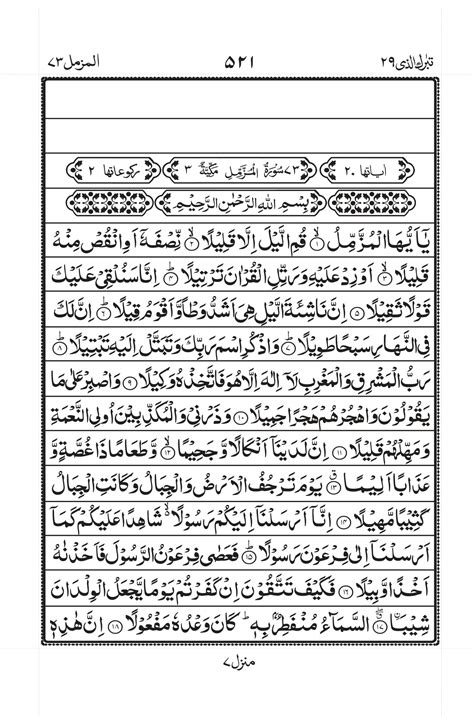 تبٰرك الذی ٢٩ ٥٢١ المزمل ٧٣
اٰیاتها ٢٠ ٧٣ سُوْرَةُ الْمُزَّمِّلِ مَكِّیَّةٌ ٣ ركوعاتها ٢
بِسْمِ اللّٰهِ الرَّحْمٰنِ الرَّحِیْمِ
یٰۤاَیُّهَا الْمُزَّمِّلُ ۙ﴿۱﴾ قُمِ الَّیْلَ اِلَّا قَلِیْلًا ۙ﴿۲﴾ نِّصْفَهٗۤ اَوِ انْقُصْ مِنْهُ
قَلِیْلًا ۙ﴿۳﴾ اَوْ زِدْ عَلَیْهِ وَرَتِّلِ الْقُرْاٰنَ تَرْتِیْلًا ؕ﴿۴﴾ اِنَّا سَنُلْقِیْ عَلَیْكَ
قَوْلًا ثَقِیْلًا ﴿۵﴾ اِنَّ نَاشِئَةَ الَّیْلِ هِیَ اَشَدُّ وَطْاً وَّاَقْوَمُ قِیْلًا ؕ﴿۶﴾ اِنَّ لَكَ
فِی النَّهَارِ سَبْحًا طَوِیْلًا ؕ﴿۷﴾ وَاذْكُرِ اسْمَ رَبِّكَ وَتَبَتَّلْ اِلَیْهِ تَبْتِیْلًا ؕ﴿۸﴾
رَبُّ الْمَشْرِقِ وَالْمَغْرِبِ لَاۤ اِلٰهَ اِلَّا هُوَ فَاتَّخِذْهُ وَكِیْلًا ﴿۹﴾ وَاصْبِرْ عَلٰی مَا
یَقُوْلُوْنَ وَاهْجُرْهُمْ هَجْرًا جَمِیْلًا ﴿۱۰﴾ وَذَرْنِیْ وَالْمُكَذِّبِیْنَ اُولِی النَّعْمَةِ
وَمَهِّلْهُمْ قَلِیْلًا ﴿۱۱﴾ اِنَّ لَدَیْنَاۤ اَنْكَالًا وَّجَحِیْمًا ۙ﴿۱۲﴾ وَّطَعَامًا ذَا غُصَّةٍ وَّ
عَذَابًا اَلِیْمًا ٭﴿۱۳﴾ یَوْمَ تَرْجُفُ الْاَرْضُ وَالْجِبَالُ وَكَانَتِ الْجِبَالُ
كَثِیْبًا مَّهِیْلًا ﴿۱۴﴾ اِنَّاۤ اَرْسَلْنَاۤ اِلَیْكُمْ رَسُوْلًا ۙ شَاهِدًا عَلَیْكُمْ كَمَاۤ
اَرْسَلْنَاۤ اِلٰی فِرْعَوْنَ رَسُوْلًا ؕ﴿۱۵﴾ فَعَصٰی فِرْعَوْنُ الرَّسُوْلَ فَاَخَذْنٰهُ
اَخْذًا وَّبِیْلًا ﴿۱۶﴾ فَكَیْفَ تَتَّقُوْنَ اِنْ كَفَرْتُمْ یَوْمًا یَّجْعَلُ الْوِلْدَانَ
شِیْبَاۨ ٭ۖ﴿۱۷﴾ السَّمَآءُ مُنْفَطِرٌۢ بِهٖ ؕ كَانَ وَعْدُهٗ مَفْعُوْلًا ﴿۱۸﴾ اِنَّ هٰذِهٖ
منزل ٧